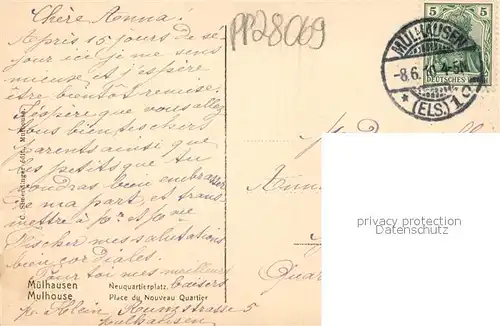 Chère Anna!
Après 15 jours de sé-
jour ici je me sens
mieux et j'espère
être bientôt remise.
J'espère que vous allez
tous bien tes chers
parents ainsi que
les petits que tu
voudras bien embrasser
de ma part, et trans-
mettre à Mr et Mme
Fischer mes salutations
bien cordiales.
Pour toi mes meilleurs
baisers
Klein Kunzstrasse 5
Mülhausen
édit., Mulhouse
Mülhausen Neuquartierplatz.
Mulhouse Place du Nouveau Quartier
PP28069
5 5
DEUTSCHES
MÜLHAUSEN
-8.6. 4-5N
* (ELS.) 1
Anna
privacy protection
Datenschutz